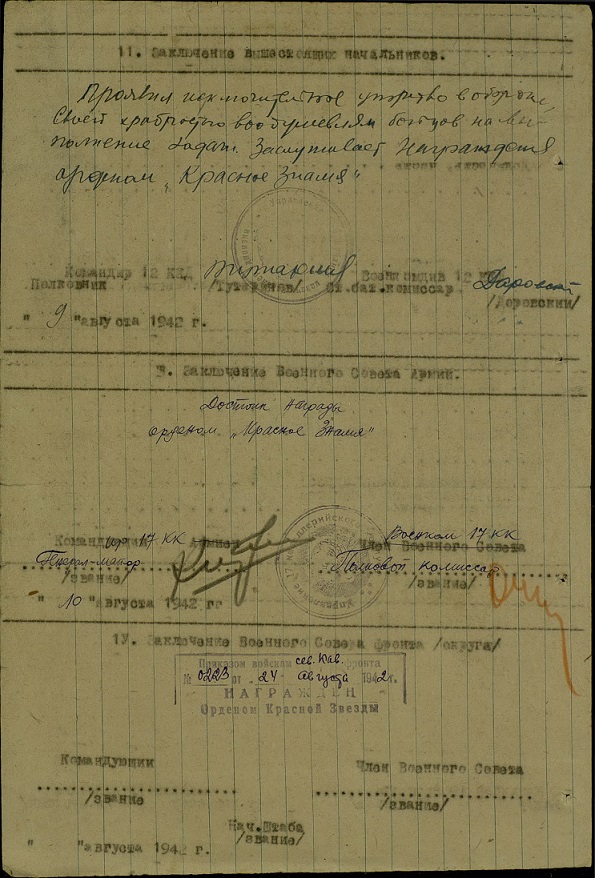 11. Заключение вышестоящих начальников.
Проявил исключительное упорство в обороне,
своей храбростью воодушевлял бойцов на вы-
полнение задач. Заслуживает награждения
орденом "Красное Знамя"
Командир 12 ККД Военкомдив 12
Полковник /Тутаринов/ Ст.бат.комиссар
/Даровский/
" 9 "августа 1942 г.
Заключение Военного Совета Армии.
Достоин награды
орденом "Красное Знамя"
Командующий 17 КК Военком 17 КК
Член Военного Совета
Генерал-майор Полковой комиссар
/звание/ /звание/
" 10 "августа 1942 г
1У. Заключение Военного Совета фронта /округа/
Приказом войскам сев. Кав. фронта
№ 0223 от 24 августа 1942 г.
НАГРАЖДЕН
Орденом Красной Звезды
Командующий Член Военного Совета
/звание /звание/
Нач.Штаба
/звание/
" "августа 1942 г.